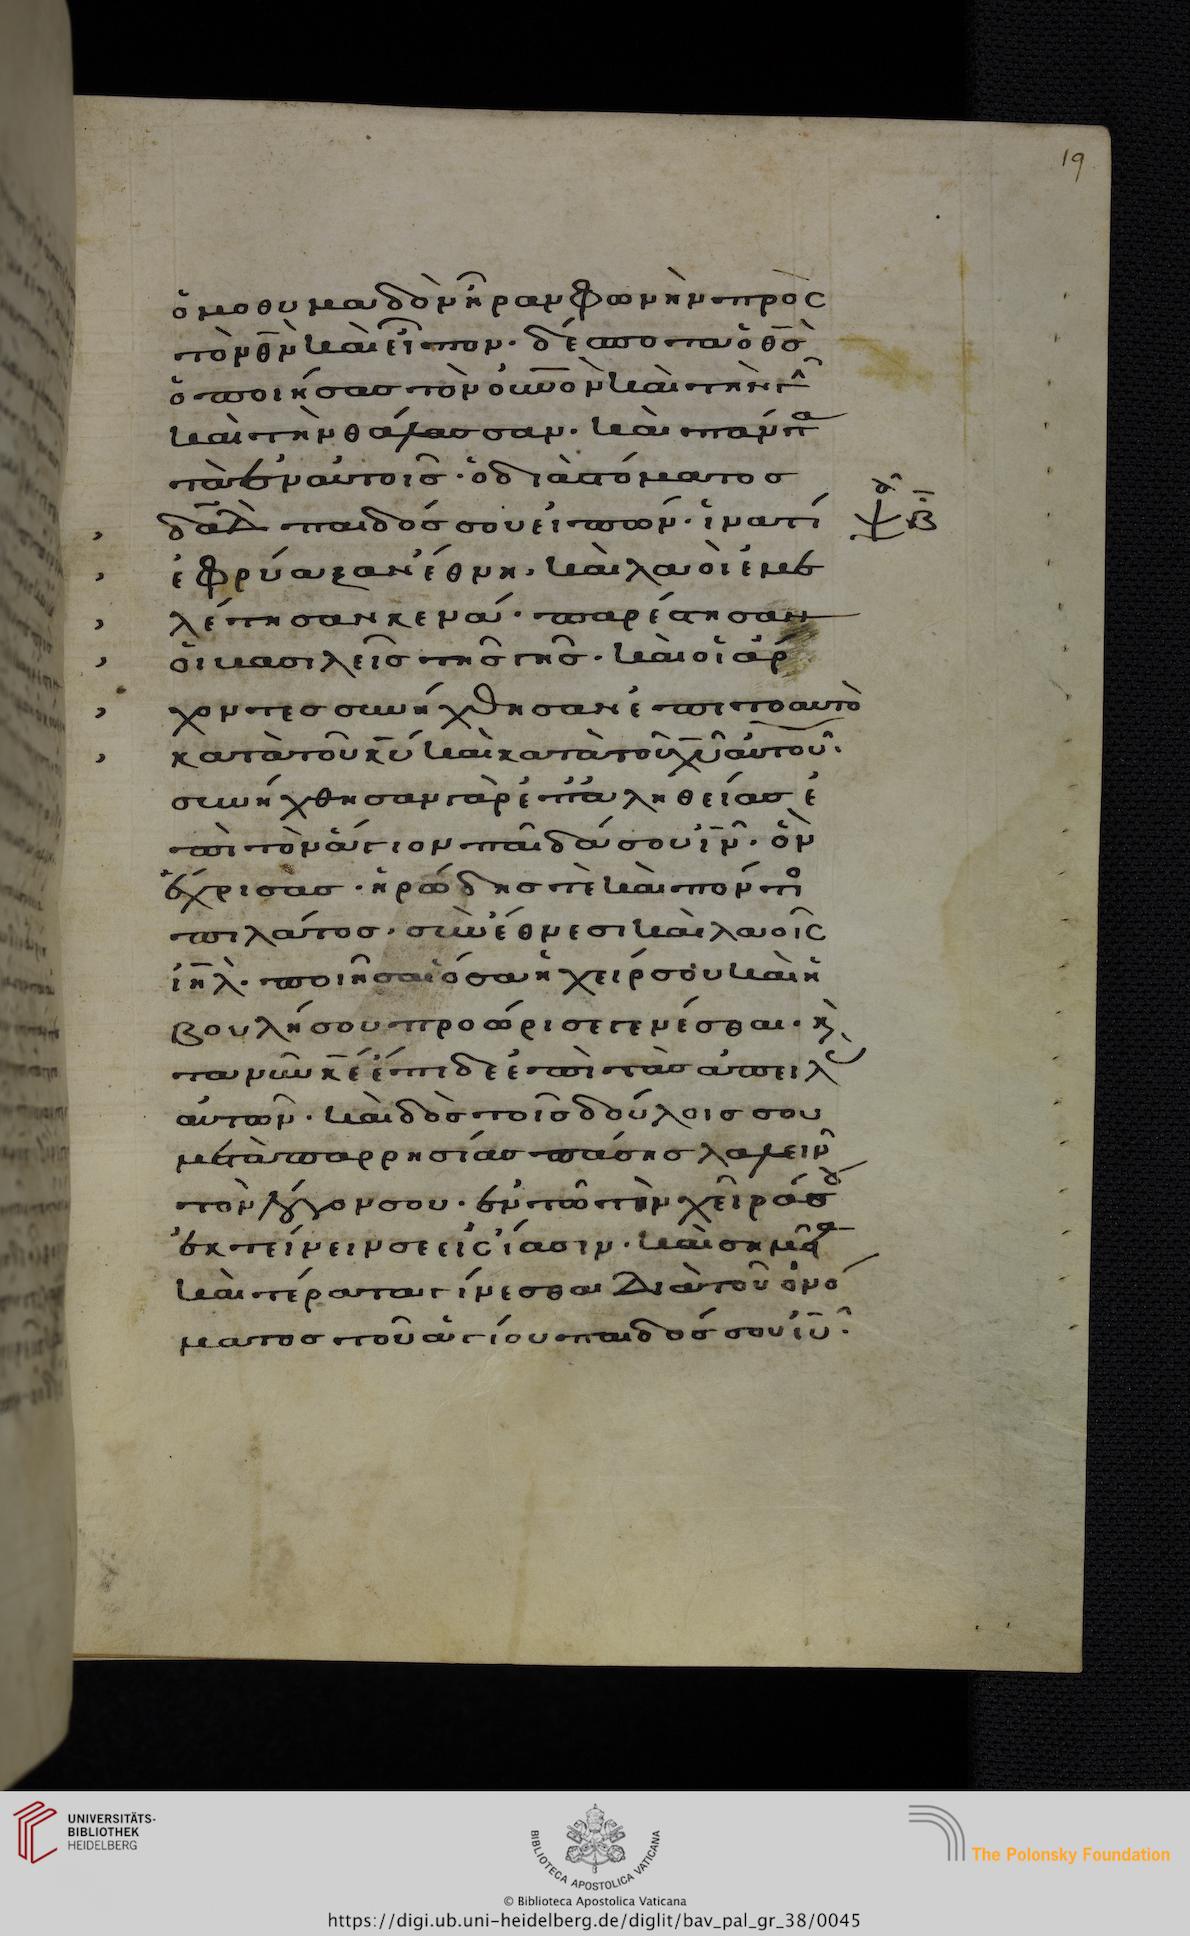 19
ὁμοθυμαδὸν ἦραν φωνὴν πρὸς
τὸν θν̅ καὶ εἶπον· δέσποτα ὁ θς̅
ὁ ποιήσας τὸν οὐνο̅ν καὶ τὴν γῆ
καὶ τὴν θάλασσαν· καὶ πάντα
τὰ ἐν αὐτοῖς· ὁ διὰ στόματος
δα̅δ παιδός σου εἰπών· ἱνατί
δ ψ β̅
ἐφρύαξαν ἔθνη· καὶ λαοὶ ἐμε
λέτησαν κενά· παρέστησαν
οἱ βασιλεῖς τῆς γῆς· καὶ οἱ ἄρ
χοντες συνήχθησαν ἐπιτοαυτὸ
κατὰ τοῦ κυ̅ καὶ κατὰ τοῦ χυ̅ αὐτοῦ·
συνήχθησαν γὰρ ἐπ' ἀληθείας ἐ
πὶ τὸν ἅγιον παῖδά σου ιν̅· ὃν
ἔχρισας· ἡρώδης τὲ καὶ πόντιο
πιλάτος· σὺν ἔθνεσι καὶ λαοῖς
ιη̅λ· ποιῆσαι ὅσα ἡ χείρ σου καὶ ἡ
βουλή σου προώρισε γενέσθαι· κὰ
τανῦν κε̅ ἔπιδε ἐπὶ τὰς ἀπειλ
αὐτῶν· καὶ δὸς τοῖς δούλοις σου
μετὰ παρρησίας πάσης λαλεῖν
τὸν λόγον σου· ἐν τῶ τὴν χεῖρά σου
ἐκτείνειν σε εἰς ἴασιν· καὶ σημεῖα
καὶ τέρατα γίνεσθαι διὰ τοῦ ὀνό
ματος τοῦ ἁγίου παιδός σου ιυ̅·
UNIVERSITÄTS-
BIBLIOTHEK
HEIDELBERG
BIBLIOTECA APOSTOLICA VATICANA
The Polonsky Foundation
© Biblioteca Apostolica Vaticana
https://digi.ub.uni-heidelberg.de/diglit/bav_pal_gr_38/0045